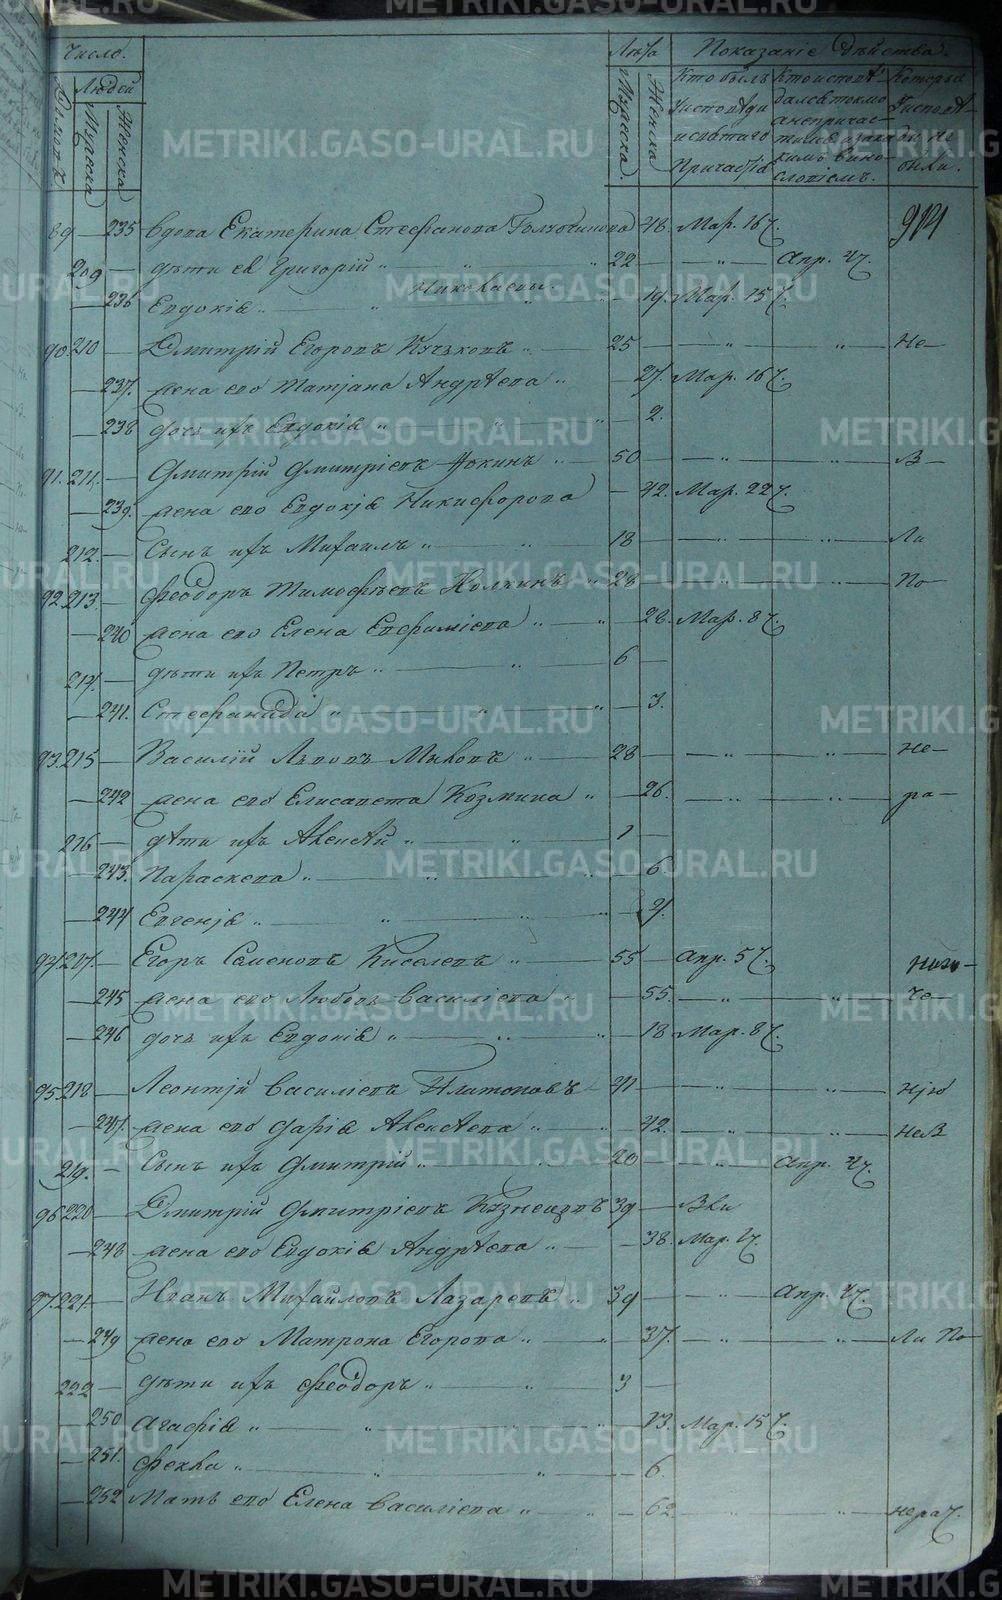 Число.
Лѣта
Показаніе Дѣйства.
Людей
Домовъ
Мужеска
Женска
Мужеска.
Женска
Кто былъ
Исповѣди
и святаго
Причастія
Кто исповѣ-
дался токмо
а не причас-
тился, и за ка-
кимъ вино-
словіемъ.
Которые
Исповѣ-
ди не
были.
914
89 — 235 вдова Екатерина Стефанова 48. Мар. 16
209 — дѣти ея Григорій 22 — Апр.
Николаевы.
— 236 Евдокія 19. Мар. 15
90. 210 — Дмитрій Егоровъ 25 — Не —
— 237. жена его Татіана Андрѣева 27. Мар. 16
— 238 дочь ихъ Евдокія — 2.
91. 211. — Дмитрій Дмитріевъ 50 — В —
— 239. жена его Евдокія Никифорова — 42. Мар. 22
212. — Сынъ ихъ Михаилъ 18 — Ли
92. 213 — Феодоръ Тимофѣевъ Колкинъ 28 — По —
— 240 жена его Елена Ефиміева 28. Мар. 8
214. — дѣти ихъ Петръ 6 —
— 241. Стефанида — 3.
93. 215 — Василій Львовъ 28 — не —
— 242 жена его Елисавета Козмина — 26. ра —
216 — дѣти ихъ Алексѣй 1 —
— 243. Параскева — 6.
— 244 Евгенія
94. 217. — Егоръ Семеновъ Киселевъ 55 — Апр. 5
— 245 жена его Любовь Василіева 55. че —
— 246 дочь ихъ Евдокія — 18 Мар. 8
95. 218 — Леонтій Василіевъ Платоновъ 41 — нію
— 247. жена его Дарія Алексѣева — 42. неВ
219. — Сынъ ихъ Дмитрій 20 — Апр.
96. 220 — Дмитрій Дмитріевъ Кузнецовъ 39 —
— 248 жена его Евдокія Андрѣева — 38. Мар.
97. 221. — Иванъ Михайловъ Лазаревъ 39 — Апр.
— 249 жена его Матрона Егорова — 37. Ли По —
222 — дѣти ихъ Феодоръ 3 —
— 250 Агафія — 13. Мар. 15
— 251. Фекла — 6
— 252 Мать его Елена Василіева — 62. нерач.
METRIKI.GASO-URAL.RU